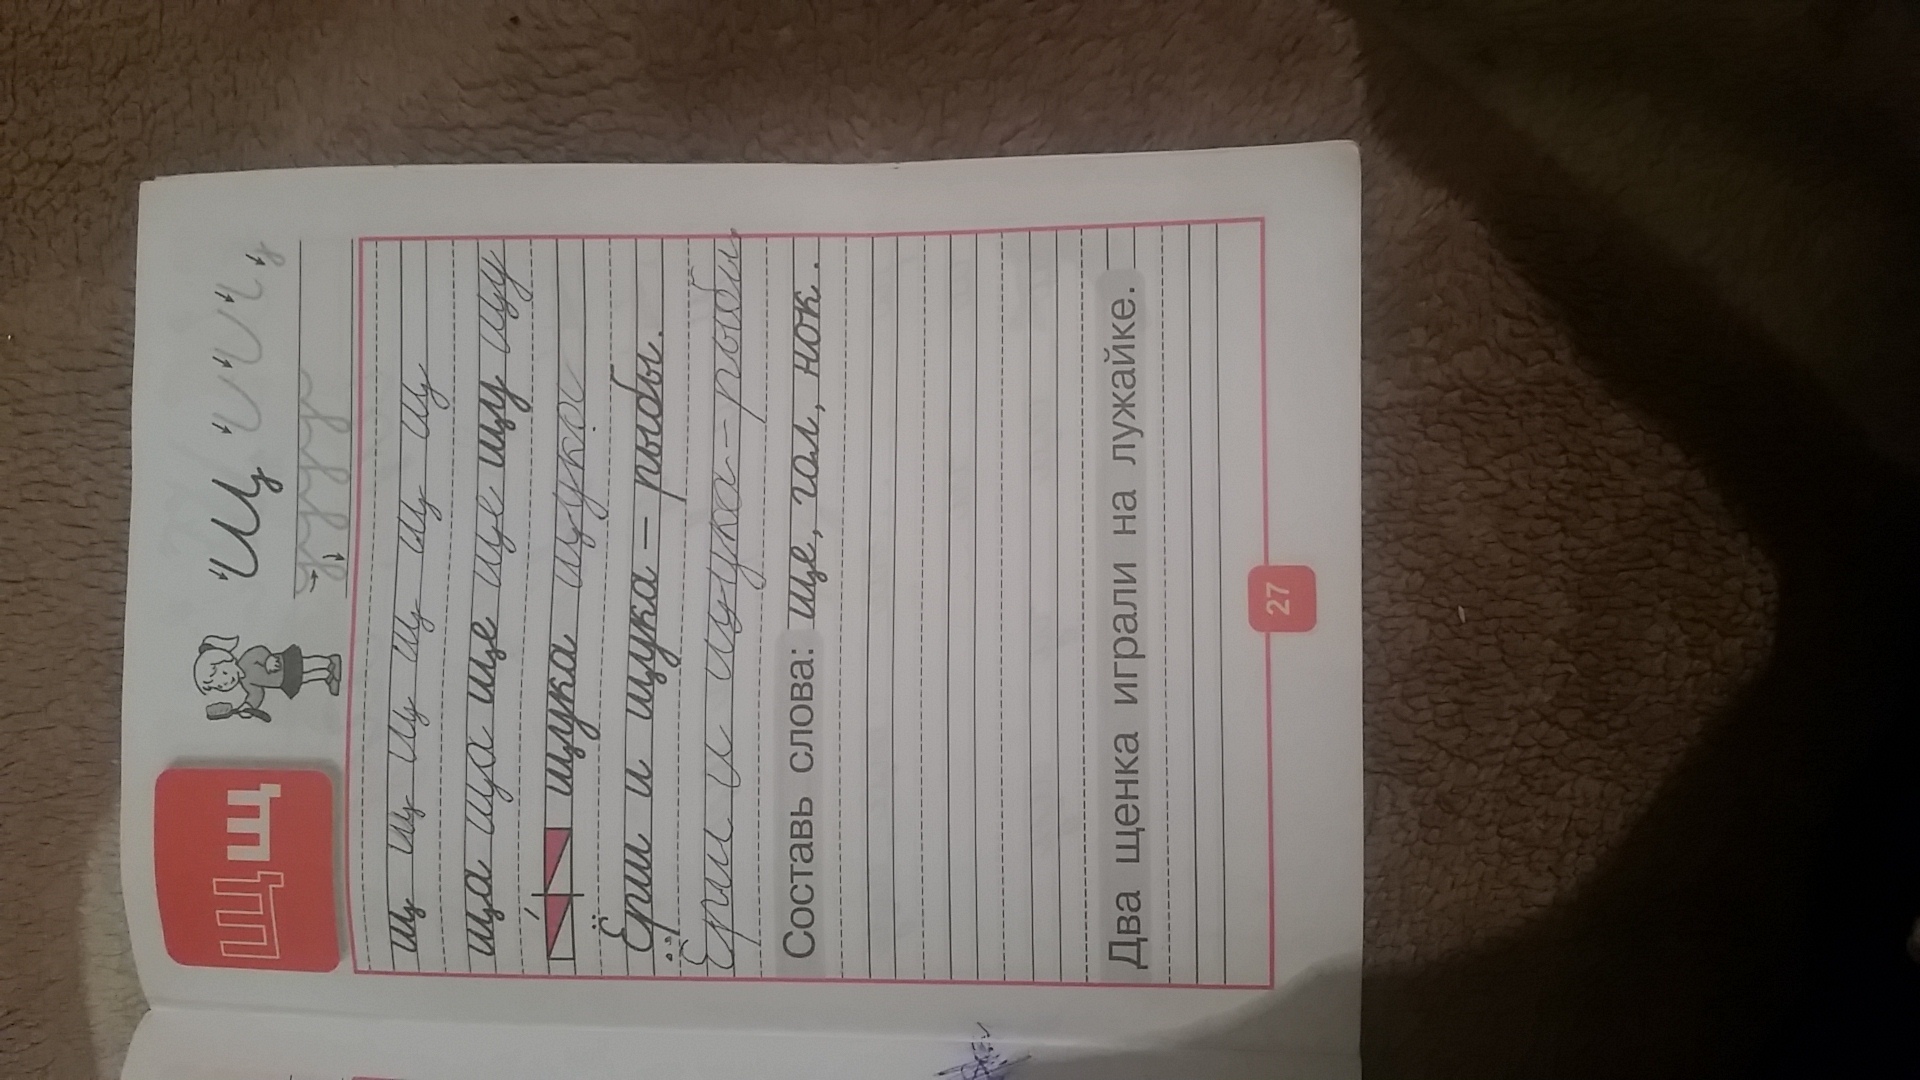 щ Щ
щ
щ щ щ щ щ щ щ щ
ща ща ще ще щу щу
щука щука
Ёрш и щука – рыбы.
Ёрш и щука – рыбы.
Составь слова: ще, гол, нок.
Два щенка играли на лужайке.
27